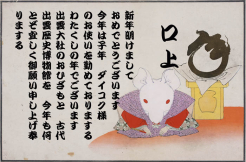 口上
新年明けまして
おめでとうございます
今年は子年 ダイコク様
のお使いを勤めておりまする
わたくしの年でございます
出雲大社のおひざもと 古代
出雲歴史博物館を 今年も何
とぞ宜しく御願い申し上げ奉
りまする